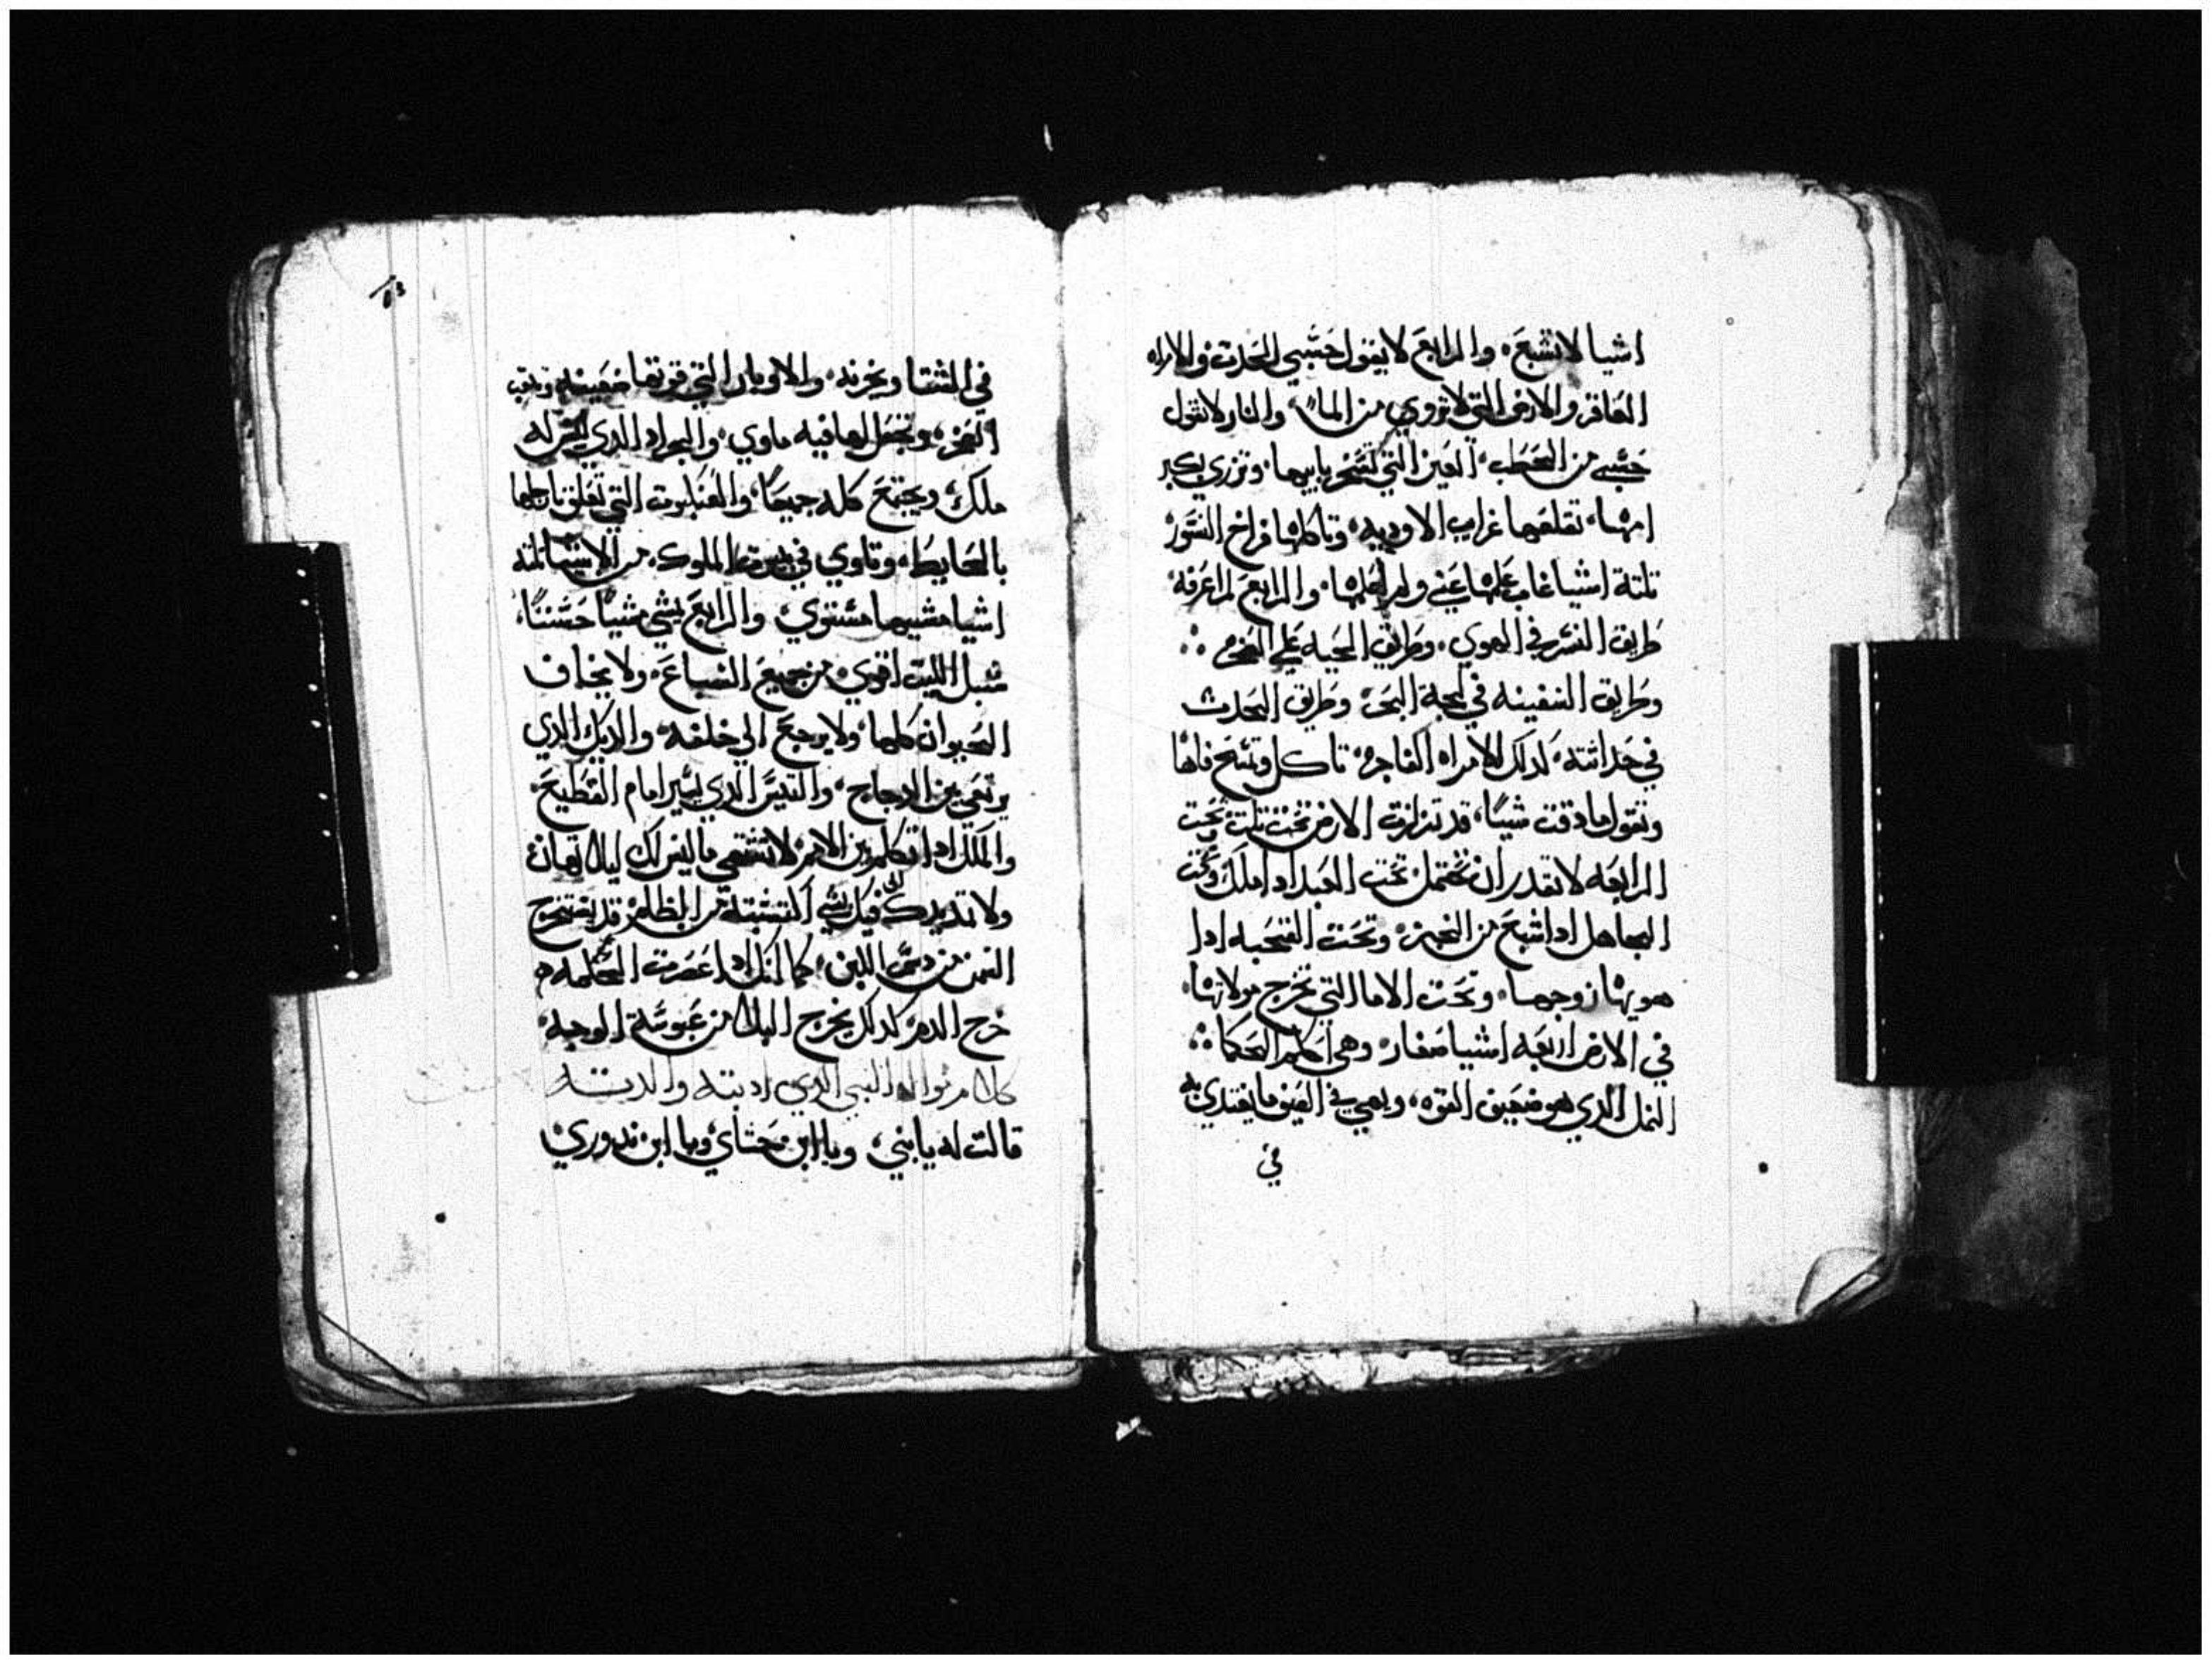 اشيا لا تشبع، والرابع لا يقول حسبي الحدث والامراه
العاقر والارض التي لا تروي من الما، والنار لا تقول
حسبي من الحطب، العين التي تسخر بابيها، وتزري بكبر
امها، تقلعها غراب الاوديه، وتاكلها فراخ النسور
تلتة اشيا غاب علمها عني ولم اعلمها، والرابع لم اعرفه،
طريق النسر في الهوي، وطريق الحيه علي الصخره
وطريق السفينه في لجة البحر، وطريق الحدث
في حداثته، كدلك الامراه الفاجره، تاكل وتمسح فاها
وتقول ما دقت شيا، قد تزلزلت الارض تحت تلت، وتحت
الرابعه لا تقدر ان تحتمل، تحت العبد ادا ملك وتحت
الجاهل ادا شبع من الخبز، وتحت القحبه ادا
هويها زوجها، وتحت الاما التي تخرج مولاتها،
في الارض اربعه اشيا صغار، وهي احكم الحكما
النمل الدي هو ضعيف القوه، ويعي في الصيف ما يغتدي به
في
في الشتا ويخزنه، والاوبار التي قوتها ضعيفه وتنقب
الصخر، وتجعل لها فيه ماوي، والجراد الدي ليس له
ملك، ويجتمع كله جميعا، والعنكبوت التي تعلق بارجلها
بالحايط، وتاوي في بيوت الملوك، من الاشيا تلتة
اشيا مشيها مستوي، والرابع يمشي مشيا حسنا،
شبل الليت اقوي من جميع السباع، ولا يخاف
الحيوان كلها، ولا يرجع الي خلفه، والديك الدي
يرتعي بين الدجاج، والتيس الدي يسير امام القطيع،
والملك ادا تكلم بين الامم، لا تشتهي ما ليس لك ليلا تهان
ولا تمد يدك الي شي اكتسبته من الظلم قد يستخرج
السمن من اللبن، كما انك ادا عصرت
خرج الدم كدلك يخرج البلا من عبوسة الوجه،
كلام موال النبي الدي ادبته والدته
قالت له يا بني، ويا ابن حشاي، ويا ابن ندوري